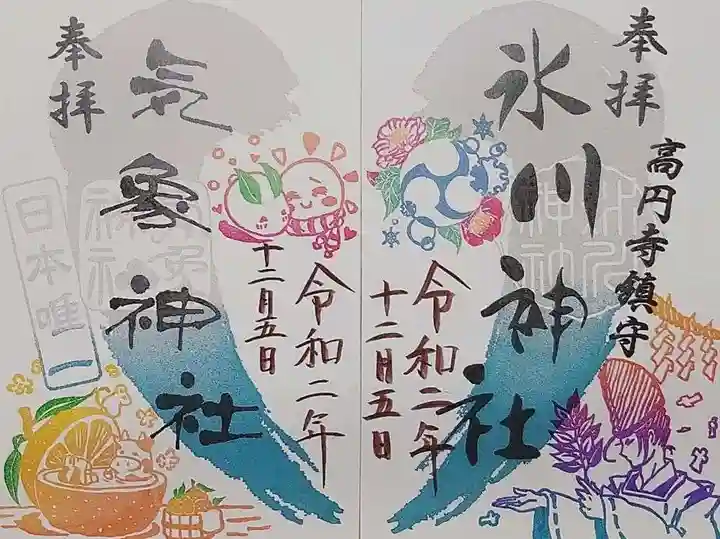 奉拝
高円寺鎮守
氷川神社
令和二年
十二月五日
奉拝
気象神社
令和二年
十二月五日
日本唯一